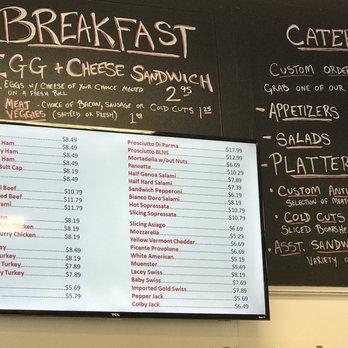 BREAKFAST
EGG + CHEESE SANDWICH
EGGS w/ CHEESE OF YOUR CHOICE MELTED
ON A FRESH ROLL
2.95
MEAT - CHOICE OF BACON, SAUSAGE OR COLD CUTS 1.25
VEGGIES (SAUTÉED OR FRESH)
CATE
CUSTOM ORDE
GRAB ONE OF OUR
- APPETIZERS
- SALADS
- PLATTER
• CUSTOM ANTI
SELECTION OF MEATS
• COLD CUTS
SLICED BOMBSHE
• ASST. SANDW
VARIETY O
$8.49
Ham $8.49
y Ham $8.49
Butt Cap $8.49
$8.19
$8.19
l Beef $10.79
ed Beef $11.79
rami $11.79
n $8.19
Chicken $8.19
urry Chicken $8.19
ey $8.19
Turkey $7.89
y Turkey $8.19
ey Turkey $7.89
$5.69
$5.79
Prosciutto Di Parma $17.99
Prosciutto BLNS $12.99
Mortadella w/out Nuts $7.99
Pancetta $6.69
Half Genoa Salami $10.29
Half Hard Salami $7.89
Sandwich Pepperoni $7.39
Bianco Doro Salami $10.19
Hot Sopressata $10.79
Slicing Sopressata $10.79
Slicing Asiago $6.69
Mozzarella $5.29
Yellow Vermont Cheddar $6.69
Picante Provolone $6.69
White American $5.19
Muenster $5.69
Lacey Swiss $8.19
Baby Swiss $7.69
Imported Gold Swiss $7.89
Pepper Jack $5.69
Colby Jack $6.49
TCL